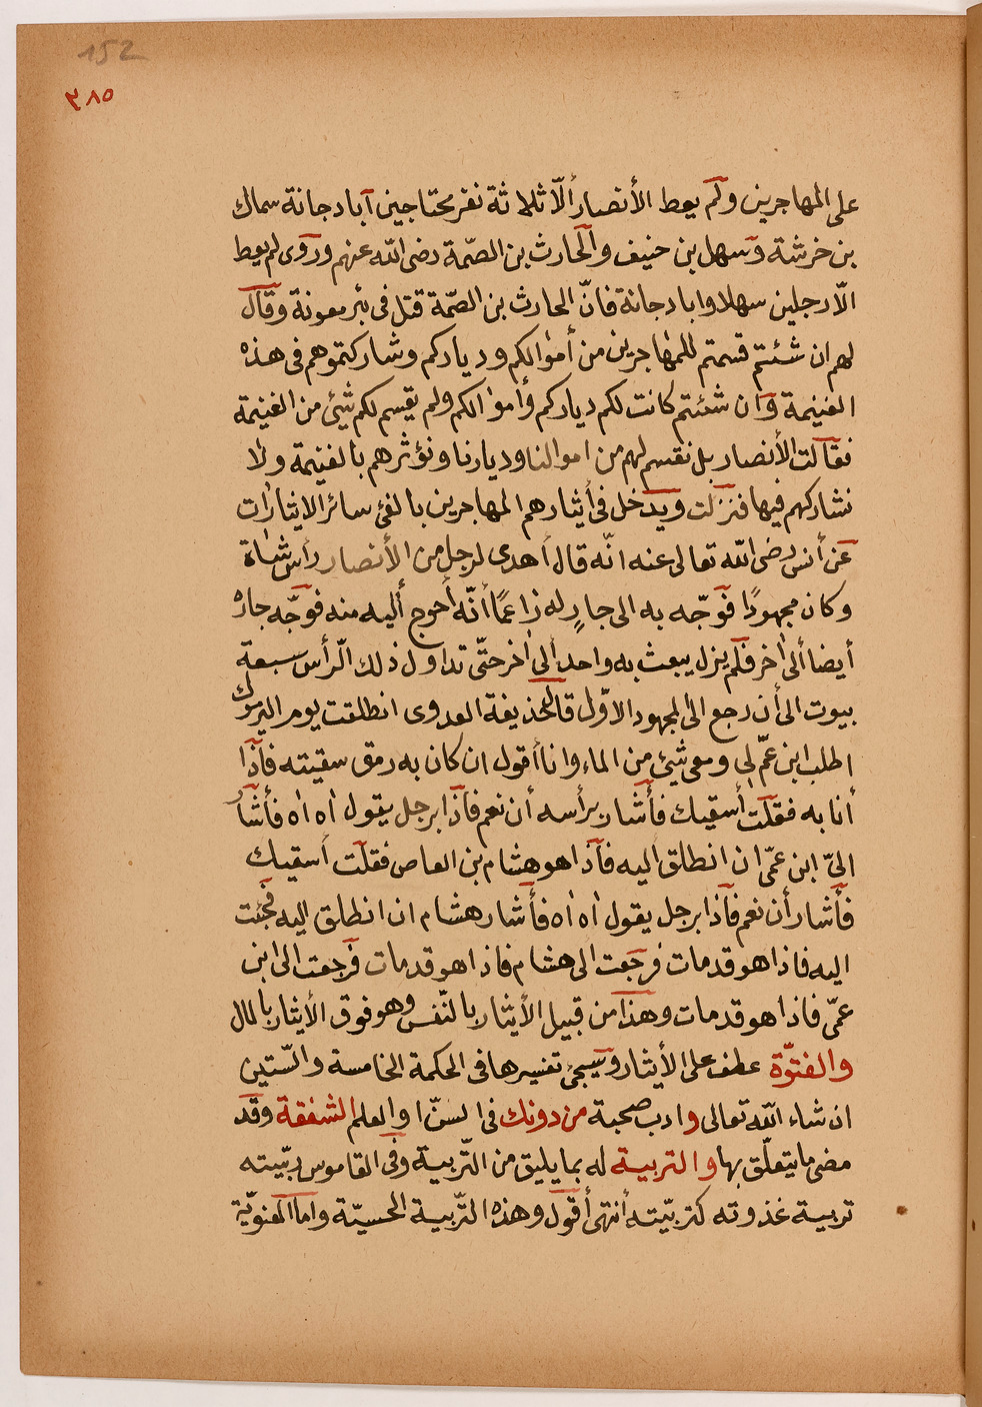 152
٣٨٥
على المهاجرين ولم يعط الأنصار ألّا ثلاثة نفر محتاجين آبا دجانة سماك
بن خرشة وسهل بن حنيف والحارث بن الصّمة رضى الله عنهم وروى لم يعط
الّا رجلين سهلا وابا دجانة فانّ الحارث بن الصّمة قتل فى بئر معونة وقال
لهم ان شئتم قسمتم للمهاجرين من أموالكم ودياركم وشاركتموهم فى هذه
الغنيمة وان شئتم كانت لكم دياركم وأموالكم ولم يقسم لكم شيئ من الغنيمة
فقالت الأنصار بل نقسم لهم من اموالنا وديارنا ونؤثرهم بالغنيمة ولا
نشاركهم فيها فنزلت ويدخل فى أيثارهم المهاجرين بالفئ سائر الايثارات
عن أنس رضى الله تعالى عنه انّه قال أهدى لرجل من الأنصار رأس شاة
وكان مجهودًا فوّجه به الى جارٍ له زاعمًا أنّه أحوج أليه منه فوجّه جاره
أيضا ألى اخر فلم يزل يبعث به واحد الى اخر حتّى تداول ذلك الّرأس سبعة
بيوت الى أن رجع الى المجهود الاوّل قال حذيفة العدوى انطلقت يوم اليرموك
اطلب ابن عمّ لى ومعى شيئ من الماء وانا أقول ان كان به رمق سقيته فأذا
أنا به فقلت أسقيك فأشار برأسه أن نعم فأذا برجل يقول اه اه فأشار
الىّ ابن عمّى ان انطلق أليه فأذا هو هشام بن العاص فقلت أسقيك
فأشار أن نعم فأذا برجل يقول اه اه فأشار هشام ان انطلق اليه فجئت
اليه فاذا هو قد مات فرجعت الى هشام فاذا هو قد مات فرجعت الى ابن
عمّى فاذا هو قد مات وهذا من قبيل الأيثار بالنّفس وهو فوق الأيثار بالمال
والفتوّة عطف على الأيثار وسيجئ تفسيرها فى الحكمة الخامسة والسّتين
ان شاء الله تعالى وادب صحبة من دونك فى السّن او العلم الشفقة وقد
مضى ما يتعلّق بها والتربية له بما يليق من التّربية وفى القاموس ربّيته
تربية غذوته كتربّيته أنتهى أقول وهذه التّربية الحسيّة واما المعنويّة